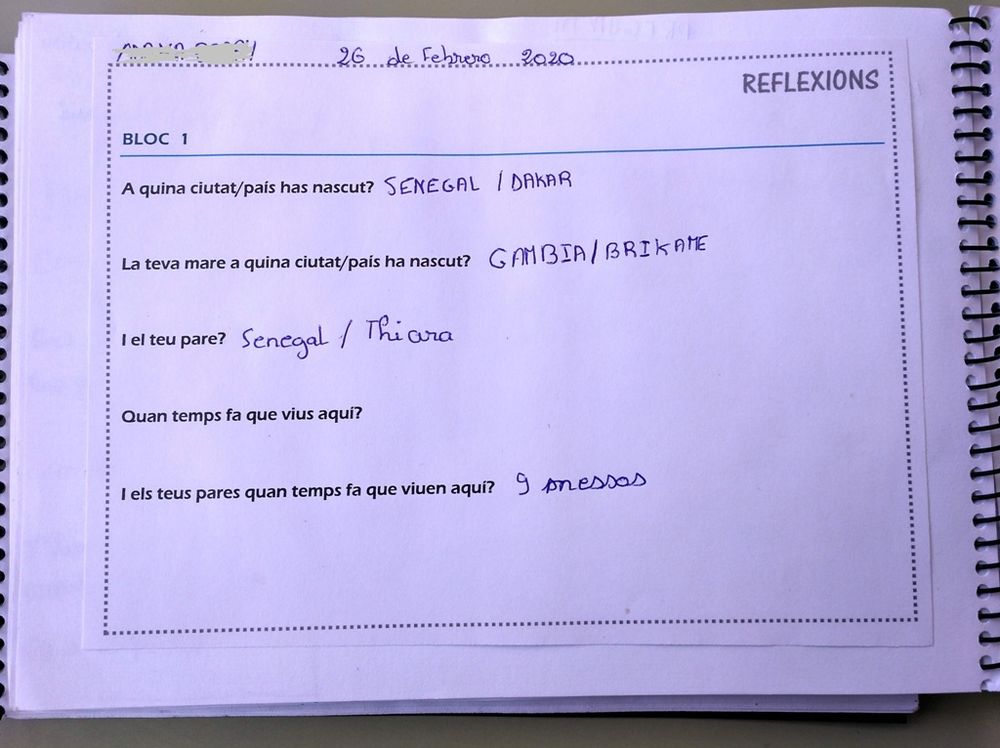 26 de Febrero 2020
REFLEXIONS
BLOC 1
A quina ciutat/país has nascut? SENEGAL / DAKAR
La teva mare a quina ciutat/país ha nascut? GAMBIA/BRIKAME
I el teu pare? Senegal / Thiara
Quan temps fa que vius aquí?
I els teus pares quan temps fa que viuen aquí? 9 messos